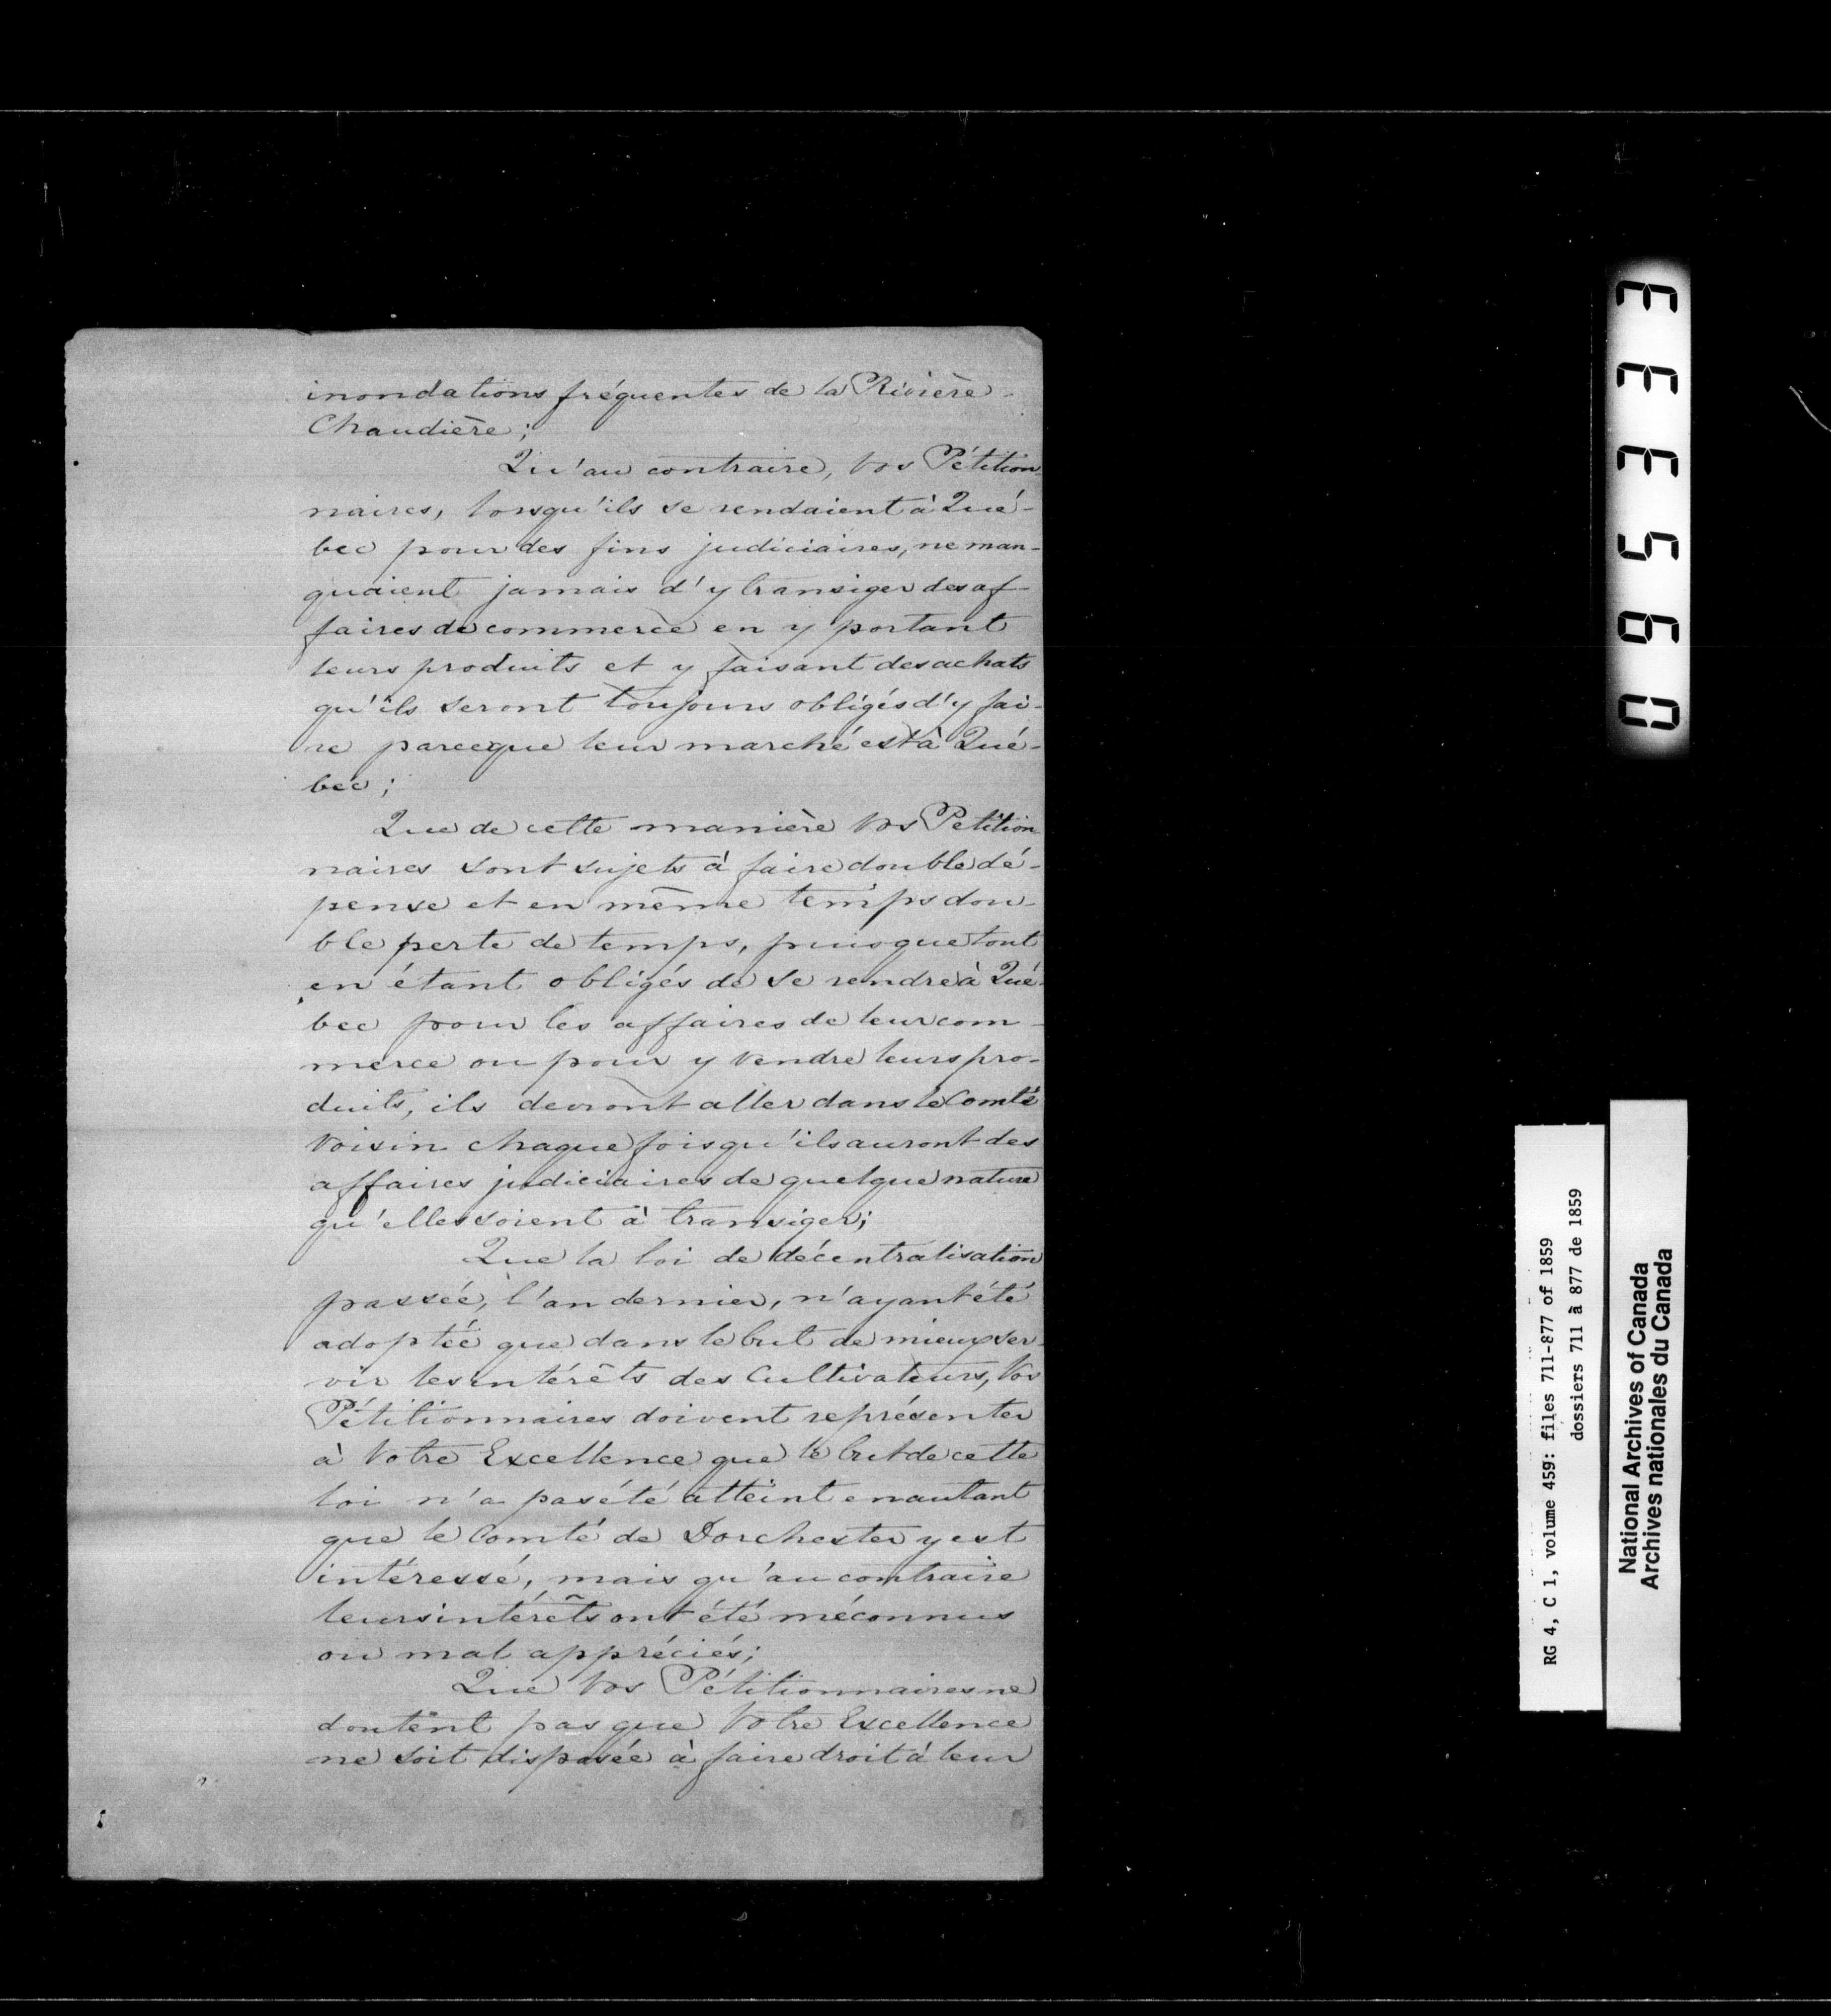 inondations fréquentes de la Rivière
Chaudière ;
Qu'au contraire, Vos Pétition-
naires, lorsqu'ils se rendaient à Qué-
bec pour des fins judiciaires, ne man-
quaient jamais d'y transiger des af-
faires de commerce en y portant
leurs produits et y faisant des achats
qu'ils seront toujours obligés d'y fai-
re parceque leur marché est à Qué-
bec ;
Que de cette manière Vos Petition
naires sont sujets à faire double dé-
pense et en même temps dou-
ble perte de temps, puisque tout
en étant obligés de se rendre à Qué-
bec pour les affaires de leur com-
merce ou pour y vendre leurs pro-
duits, ils devront aller dans le Comté
voisin chaque fois qu'ils auront des
affaires judiciaires de quelque nature
qu'elles soient à transiger ;
Que la loi de décentralisation
passée, l'an dernier, n'ayant été
adoptée que dans le but de mieux ser-
vir les intérêts des Cultivateurs, Vos
Pétitionnaires doivent représenter
à Votre Excellence que le but de cette
loi n'a pas été atteint en autant
que le Comté de Dorchester y est
intéressé, mais qu'au contraire
leurs intérêts ont été méconnus
ou mal appréciés ;
Que Vos Pétitionnaires ne
doutent pas que Votre Excellence
ne soit disposée à faire droit à leur
333560
RG 4, C 1, volume 459: files 711-877 of 1859
dossiers 711 à 877 de 1859
National Archives of Canada
Archives nationales du Canada